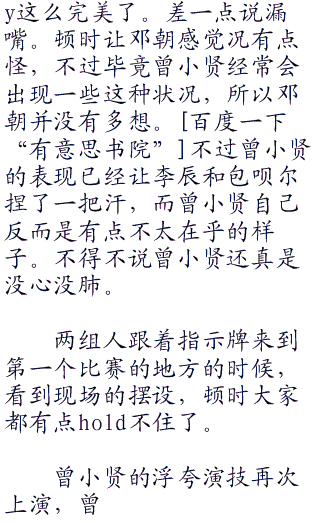 y这么完美了。差一点说漏
嘴。顿时让邓朝感觉况有点
怪，不过毕竟曾小贤经常会
出现一些这种状况，所以邓
朝并没有多想。[百度一下
“有意思书院”]不过曾小贤
的表现已经让李辰和包呗尔
捏了一把汗，而曾小贤自己
反而是有点不太在乎的样
子。不得不说曾小贤还真是
没心没肺。
两组人跟着指示牌来到
第一个比赛的地方的时候，
看到现场的摆设，顿时大家
都有点hold不住了。
曾小贤的浮夸演技再次
上演，曾